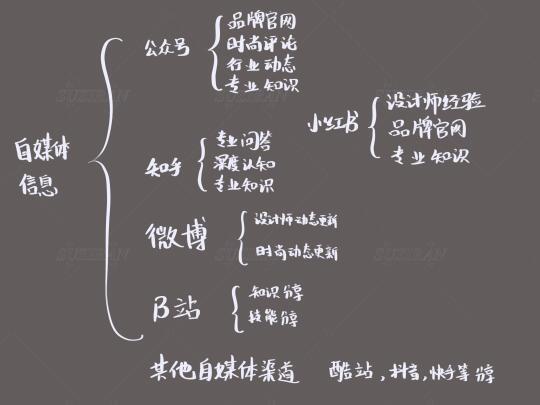 自媒体
信息
公众号
品牌官网
时尚评论
行业动态
专业知识
小红书
设计师经验
品牌官网
专业知识
知乎
专业问答
深度认知
专业知识
微博
设计师动态更新
时尚动态更新
B站
知识分享
技能分享
其他自媒体渠道 酷站,抖音,快手等分享